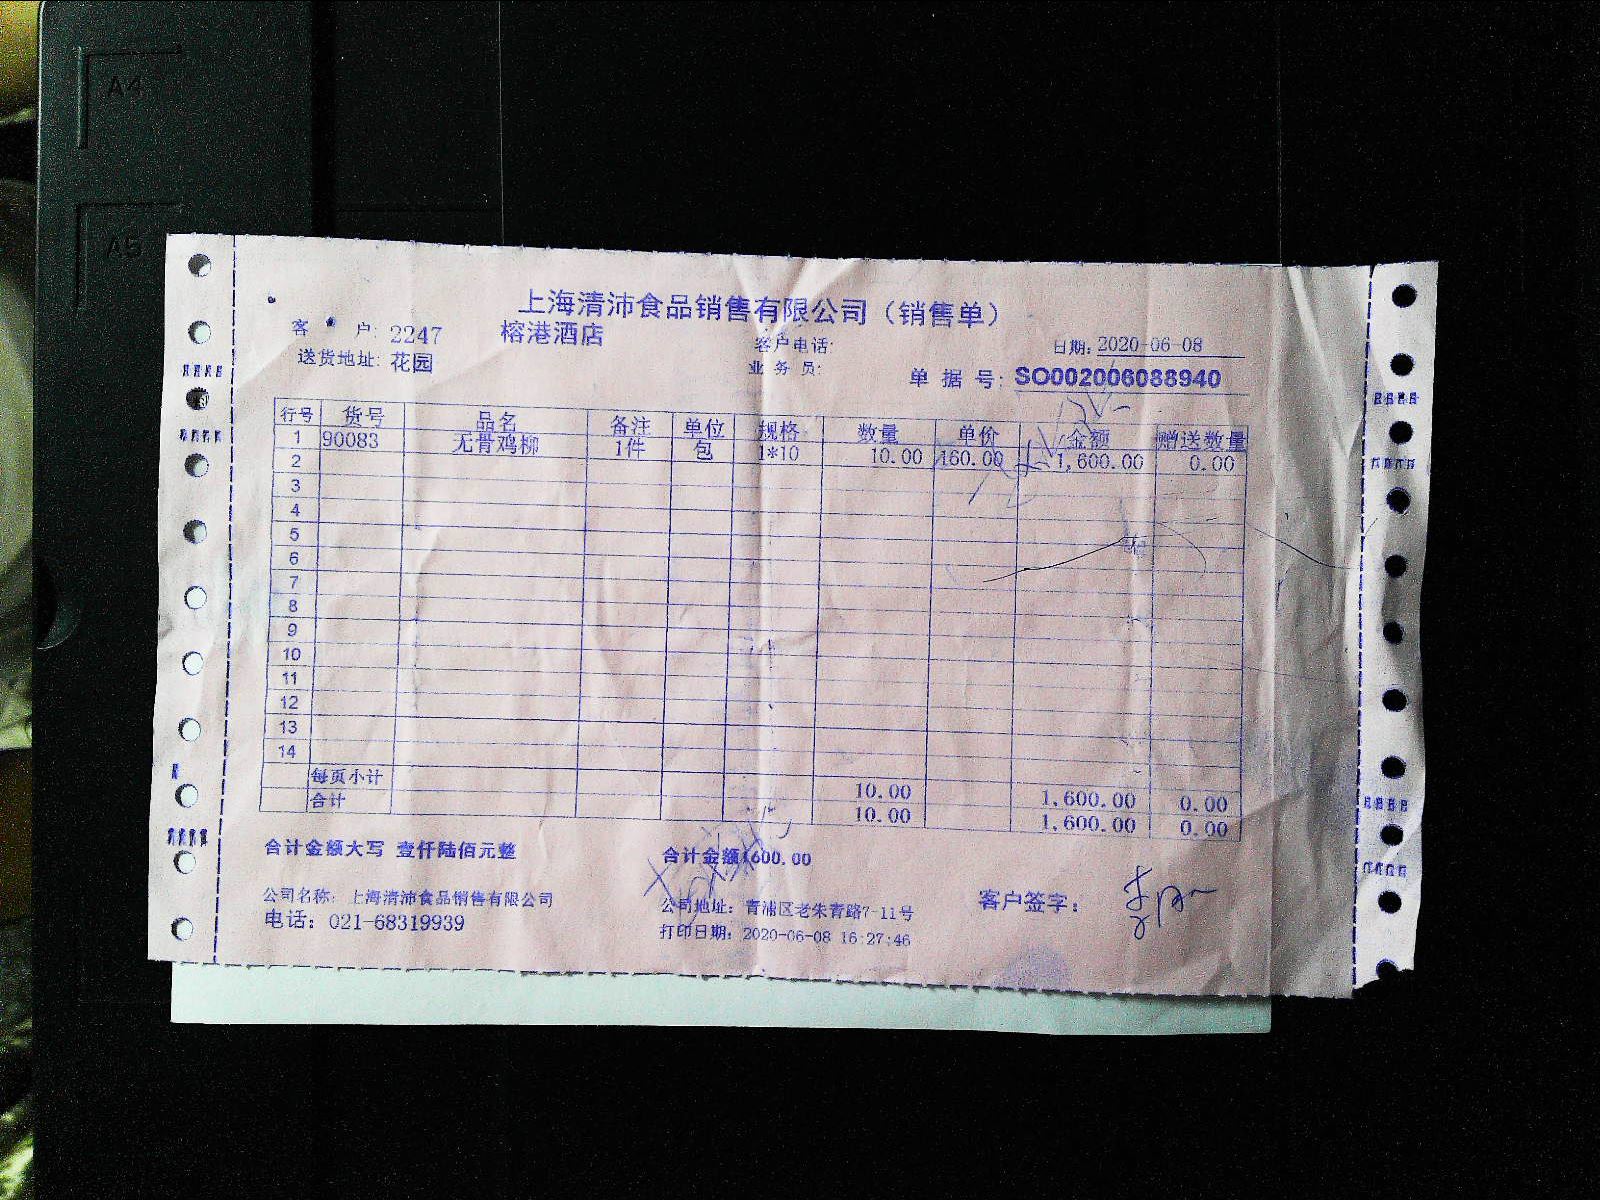 A4
A5
上海清沛食品销售有限公司（销售单）
客 户: 2247 榕港酒店 客户电话: 日期: 2020-06-08
送货地址: 花园 业务员: 单据号: SO002006088940
行号 货号 品名 备注 单位 规格 数量 单价 金额 赠送数量
1 90083 无骨鸡柳 1件 包 1*10 10.00 160.00 1,600.00 0.00
2
3
4
5
6
7
8
9
10
11
12
13
14
每页小计 10.00 1,600.00 0.00
合计 10.00 1,600.00 0.00
合计金额大写 壹仟陆佰元整 合计金额1600.00
公司名称: 上海清沛食品销售有限公司 公司地址: 青浦区老朱青路7-11号 客户签字:
电话: 021-68319939 打印日期: 2020-06-08 16:27:46